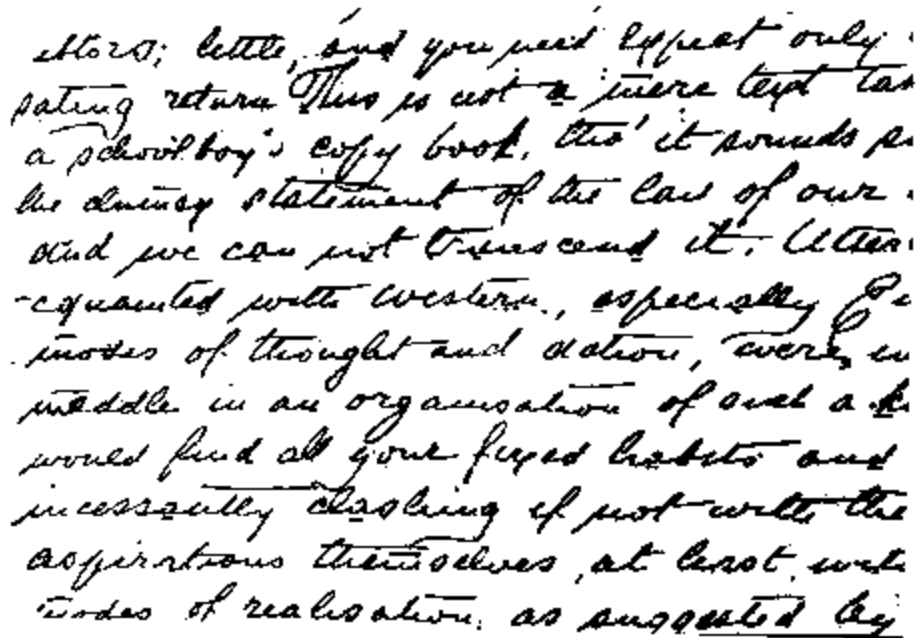 little, and you need expect only
sating return This is not a mere text
a schoolboy's copy book, tho' it sounds
the clumsy statement of the law of our
and we can not transcend it. Utter
-cquainted with western, especially
modes of thought and action, were,
meddle in an organisation of such a
would find all your fixed habits and
incessantly clashing if not with the
aspirations themselves, at least with
modes of realisation as suggested by